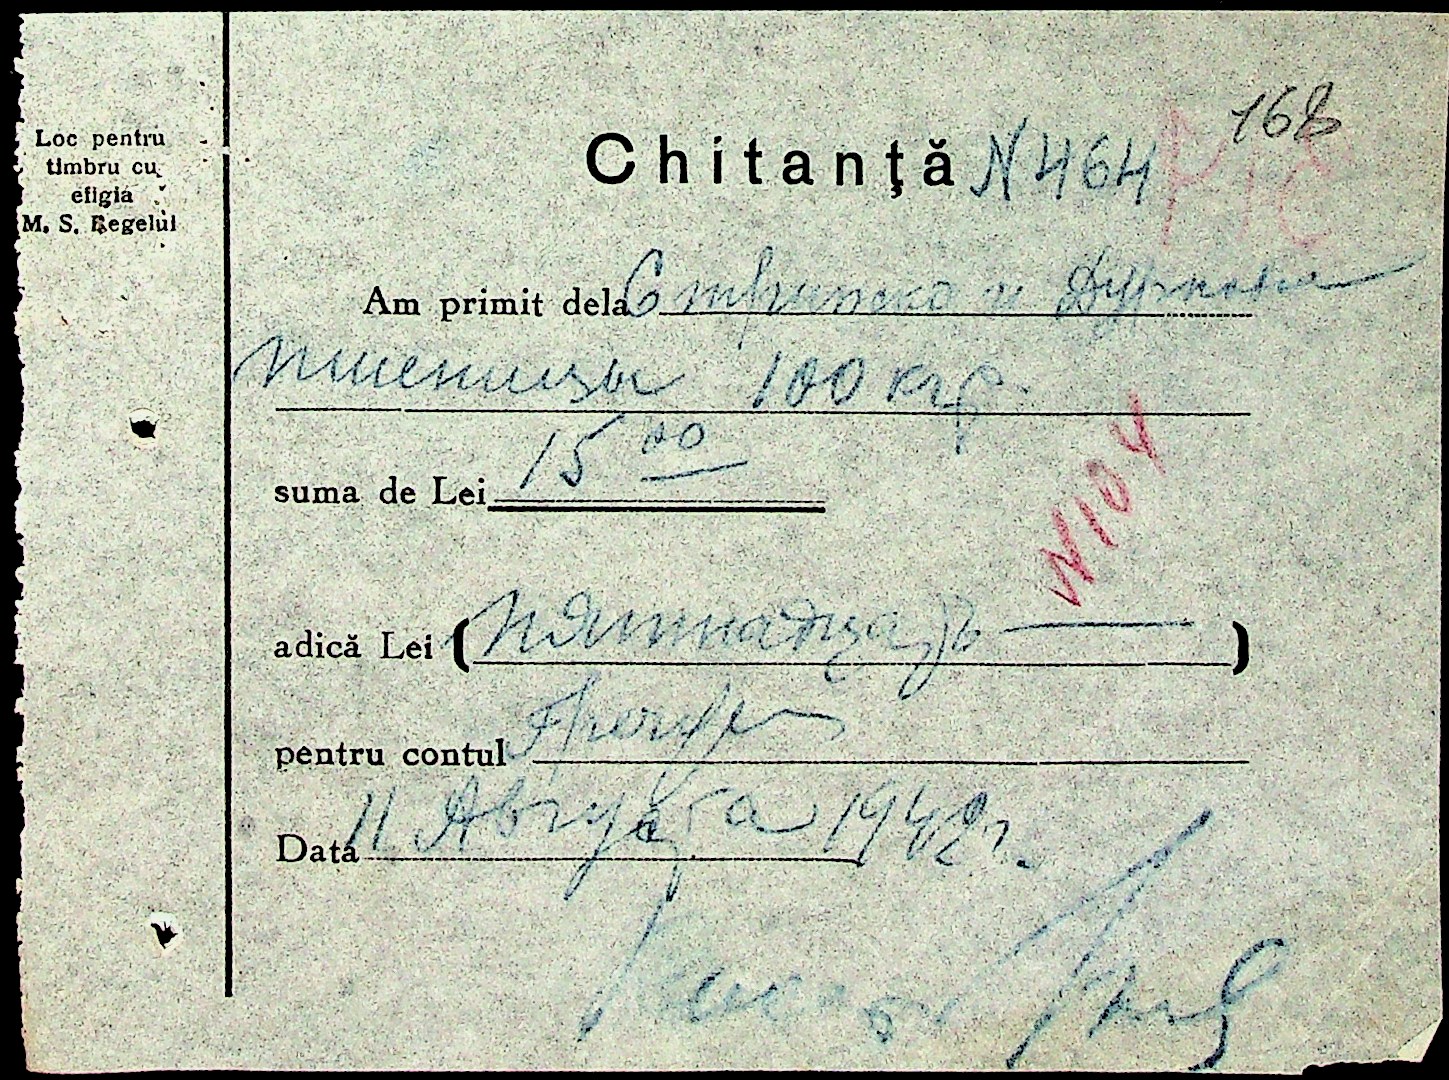 Loc pentru
timbru cu
efigia
M. S. Regelui
168
Chitanţă N 464
Am primit dela
пшеницы 100 кгр.
suma de Lei 15 00
N 104
adică Lei (пятнадцать)
pentru contul
Data 11 Августа 1942 г.